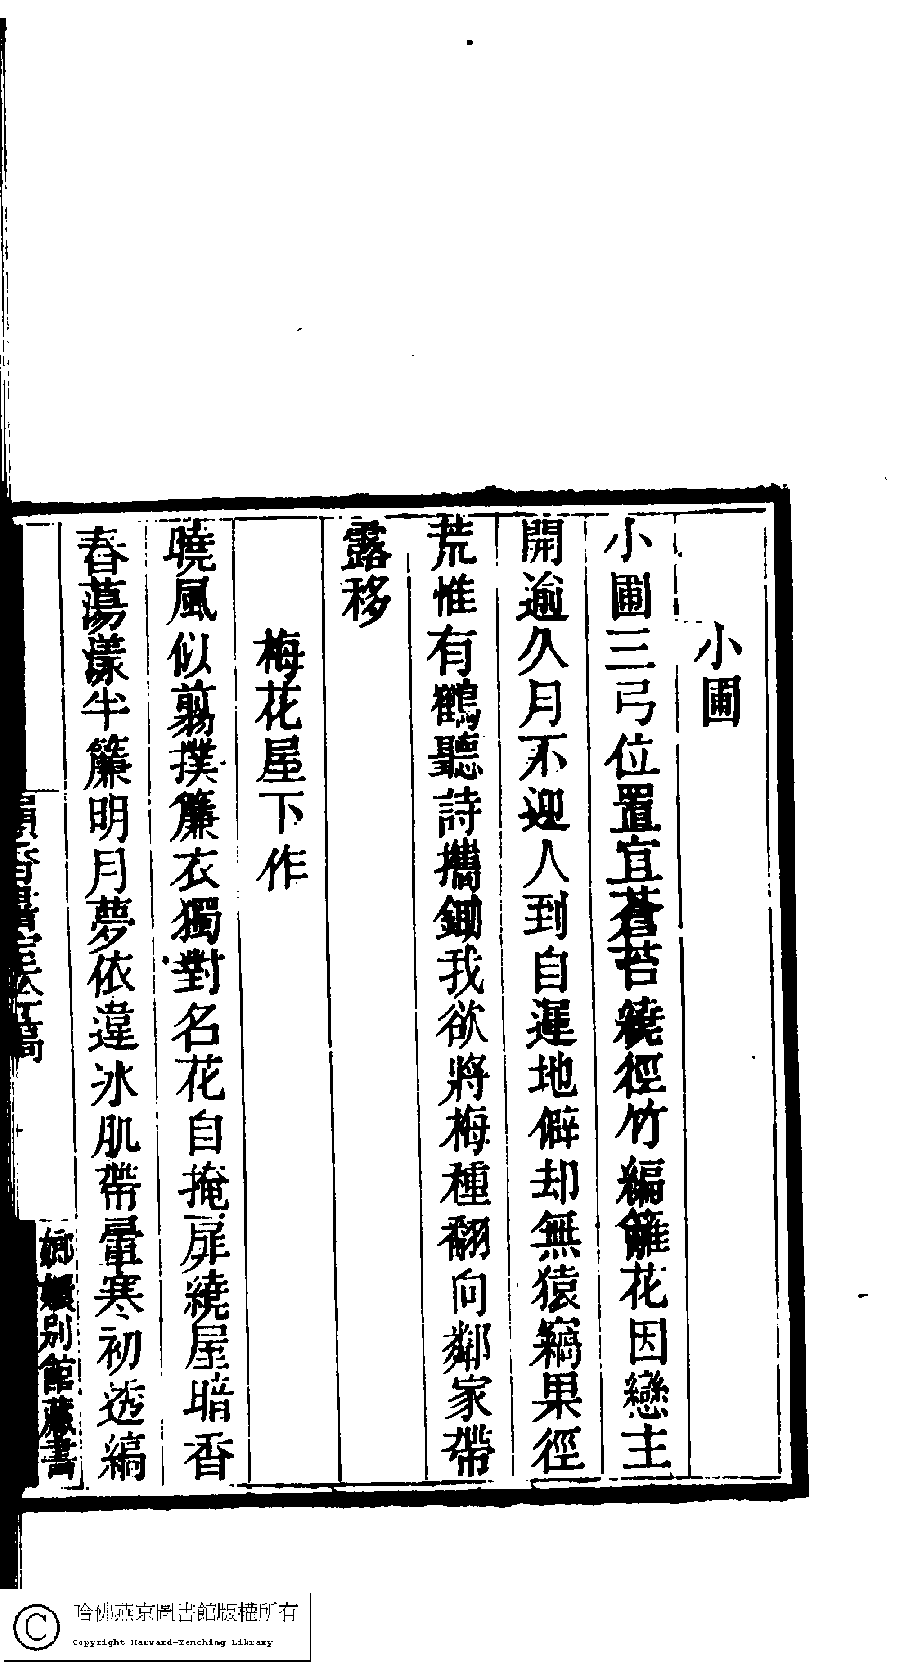 小圃
小圃三弓位置宜蒼苔繞徑竹編籬花因戀主
開逾久月不迎人到自遲地僻却無猿竊果徑
荒惟有鶴聽詩攜鋤我欲將梅種翻向鄰家帶
露移
梅花屋下作
曉風似翦撲簾衣獨對名花自掩扉繞屋暗香
春蕩漾半簾明月夢依違冰肌帶暈寒初透縞
韻香書室吟稿
嫏嬛別館藏書
哈佛燕京圖書館版權所有
Copyright Harvard-Yenching Library